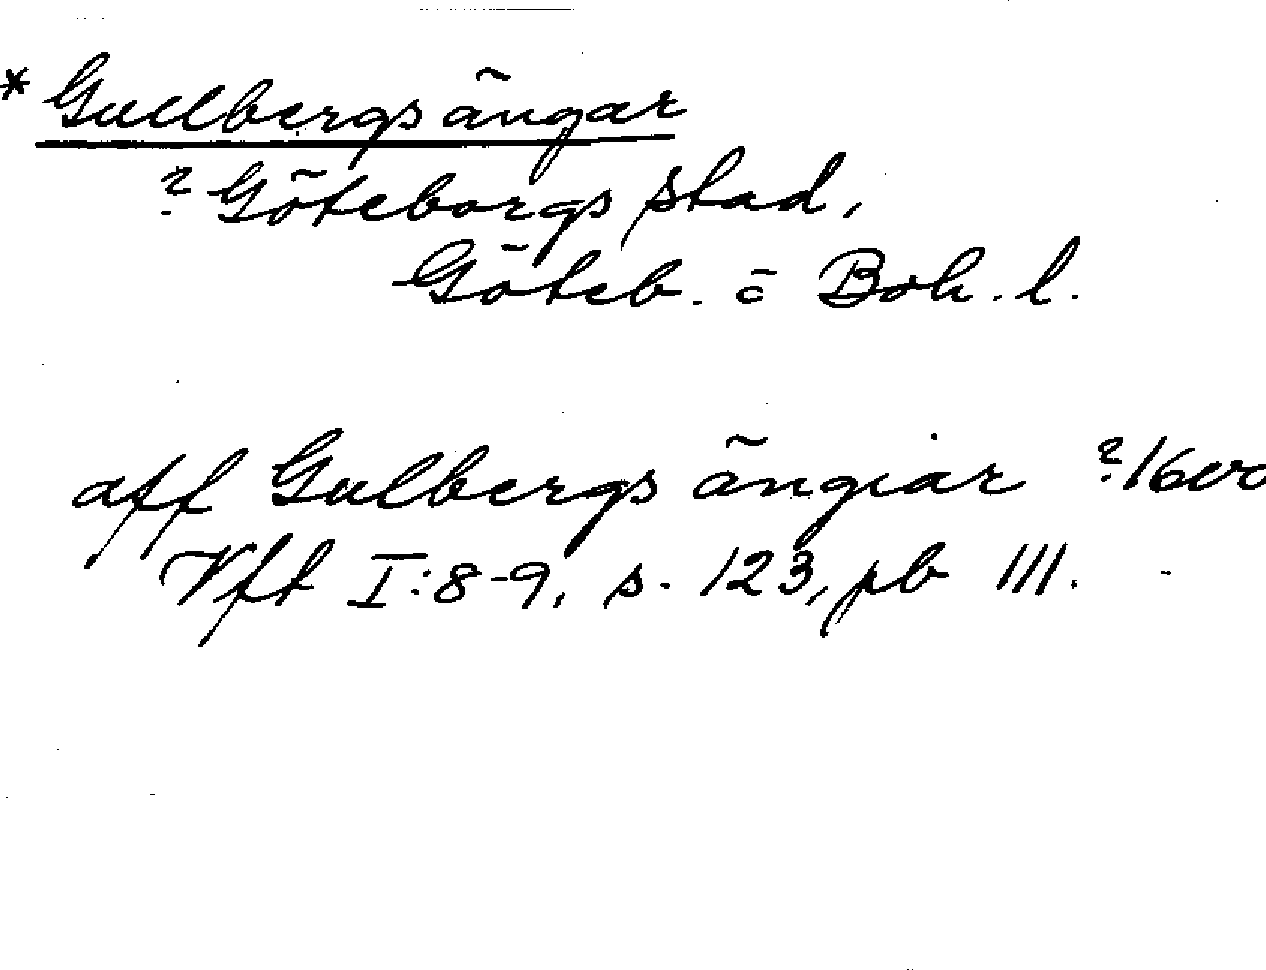 * Gullbergsängar
? Göteborgs stad,
Göteb. o Boh. l.
aff Gulbergs ängiar ?/1600
Vft I:8-9, s. 123, pb III.